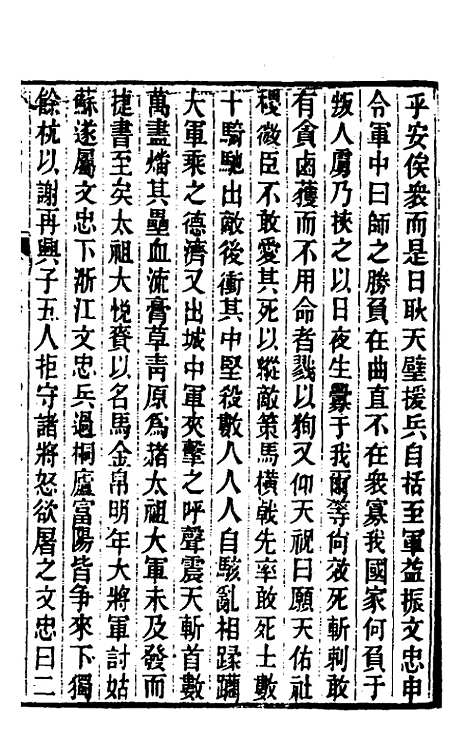 乎安俟衆而是日耿天璧援兵自括至軍益振文忠申
令軍中曰師之勝負在曲直不在衆寡我國家何負于
叛人虜乃挾之以日夜生釁于我爾等向效死斬刺敢
有貪鹵獲而不用命者戮以狥又仰天祝曰願天佑社
稷微臣不敢愛其死以縱敵策馬橫戟先率敢死士數
十騎馳出敵後衝其中堅殺數人人人自駭亂相蹂躪
大軍乘之德濟又出城中軍夾擊之呼聲震天斬首數
萬盡燔其壘血流膏草青原爲赭太祖大軍未及發而
捷書至矣太祖大悅賚以名馬金帛明年大將軍討姑
蘇遂屬文忠下浙江文忠兵過桐廬富陽皆争來下獨
餘杭以謝再興子五人拒守諸將怒欲屠之文忠曰二